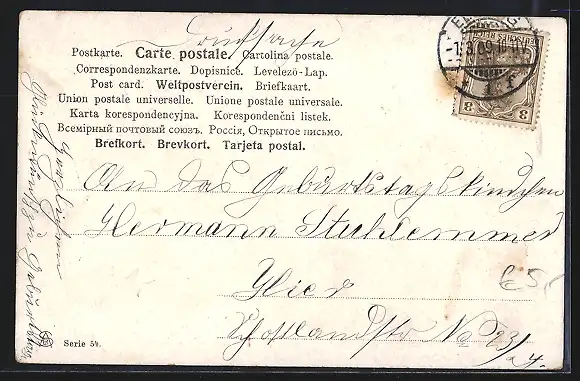 Drucksache
Postkarte. Carte postale. Cartolina postale.
Correspondenzkarte. Dopisnice. Levelező-Lap.
Post card. Weltpostverein. Briefkaart.
Union postale universelle. Unione postale universale.
Karta korespondencyjna. Korespondenční listek.
Всемірный почтовый союзъ. Россія, Открытое письмо.
Brefkort. Brevkort. Tarjeta postal.
DEUTSCHES REICH
3 3
-1.3.09.
An das Geburtstagskindchen
Hermann Stuhlemmer
Hier
Schottlandstr No 23/
£5,
Herzlichen
Glückwunsch zum Geburtstag
Serie 54.